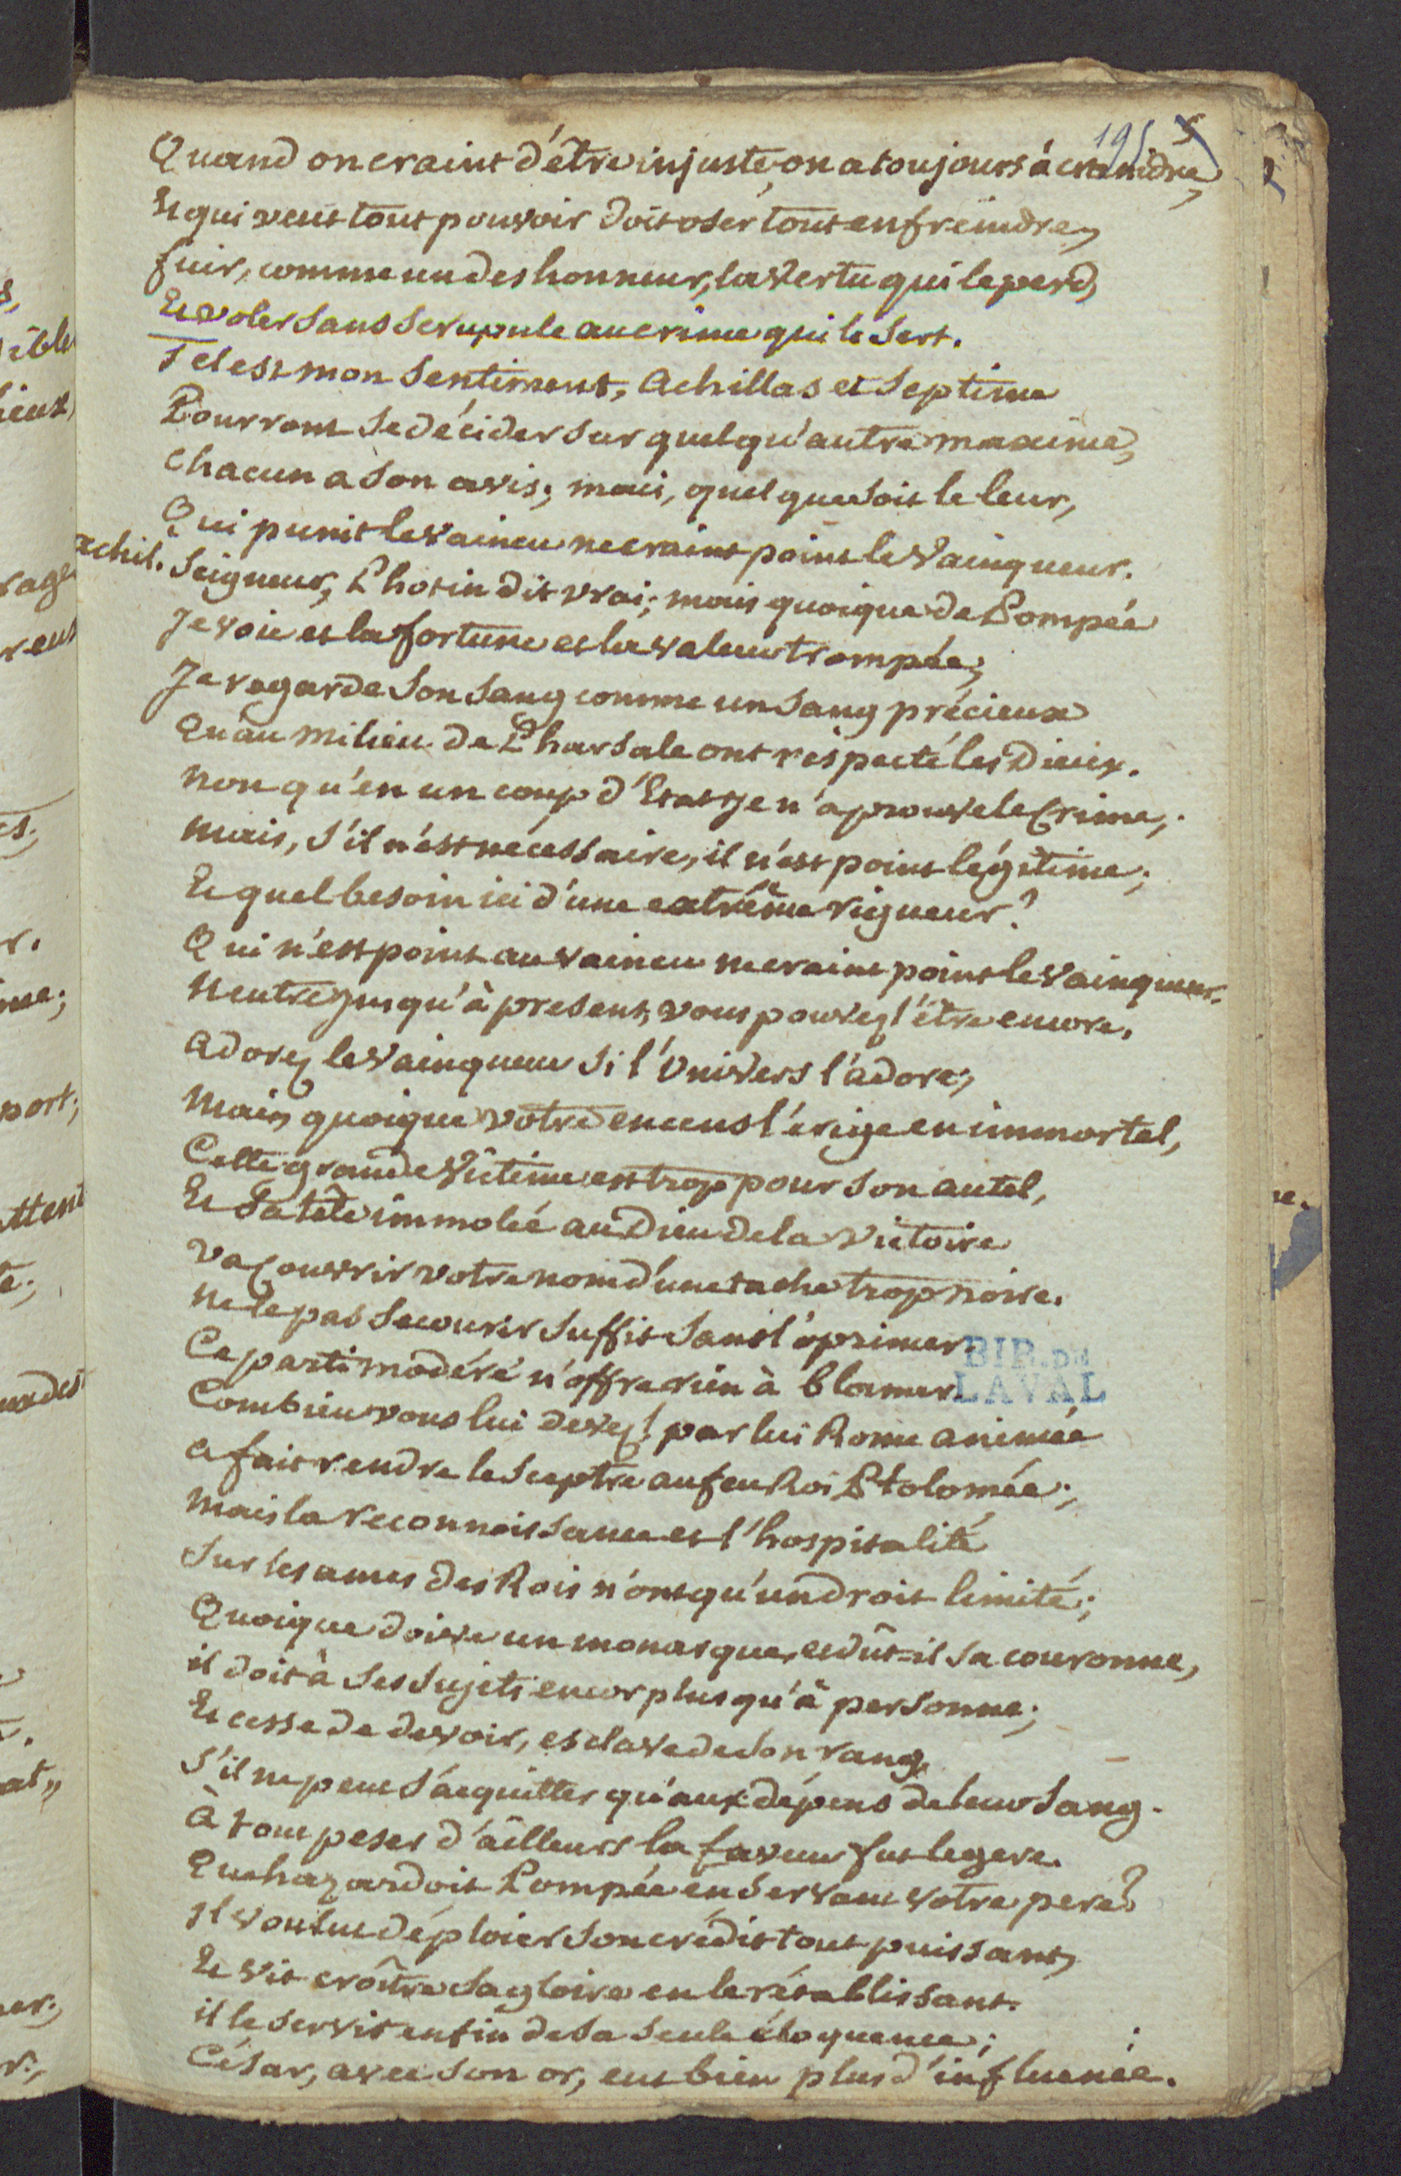 195 5
Quand on craint d'être injuste, on a toujours à craindre,
Et qui veut tout pouvoir doit oser tout enfreindre,
fuir, comme un deshonneur, la vertu qui le perd,
Et voler sans scrupule au crime qui le sert.
Tel est mon sentiment, Achillas et Septime
Pourront se décider sur quelqu'autre maxime,
chacun a son avis; mais, quel que soit le leur,
Qui punit le vaincu ne craint point le vainqueur.
achil. Seigneur, Photin dit vrai; mais quoique de Pompée
Je voie et la fortune et la valeur trompée;
Je regarde son sang comme un sang précieux
Qu'au milieu de Pharsale ont respecté les Dieux.
non qu'en un coup d'Etat je n'aprouve le Crime,
mais, s'il n'est nécessaire, il n'est point légitime;
Et quel besoin ici d'une extrême rigueur?
Qui n'est point au vaincu ne craint point le vainqueur.
Neutre jusqu'à present, vous pouvez l'être encore,
adorez le vainqueur si l'Univers l'adore;
mais, quoique votre encens l'érige en immortel,
Cette grande victime est trop pour son autel,
Et sa tête immolée au Dieu de la victoire
va couvrir votre nom d'une tache trop noire.
ne le pas secourir suffit sans l'oprimer.
Ce parti modéré n'offre rien à blamer.
Combien vous lui devez! par lui Rome animée
a fait rendre le sceptre au feu Roi Ptolomée;
mais la reconnoissance et l'hospitalité
sur les ames des Rois n'ont qu'un droit limité;
Quoique doive un monarque, et dût-il sa couronne,
il doit à ses sujets encor plus qu'à personne;
Et cesse de devoir, esclave de son rang,
S'il ne peut s'acquitter qu'aux dépens de leur sang.
à tout peser d'ailleurs la faveur fut legere.
Que hazardoit Pompée en servant votre pere?
Il voulut déploier son crédit tout puissant,
Et vit croître sa gloire en le rétablissant.
il le servit enfin de sa seule éloquence;
César, avec son or, eut bien plus d'influence.
BIB. DE
LAVAL